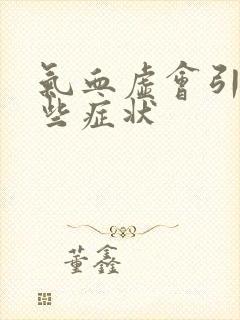 氣血虛會引
些症狀
董鑫